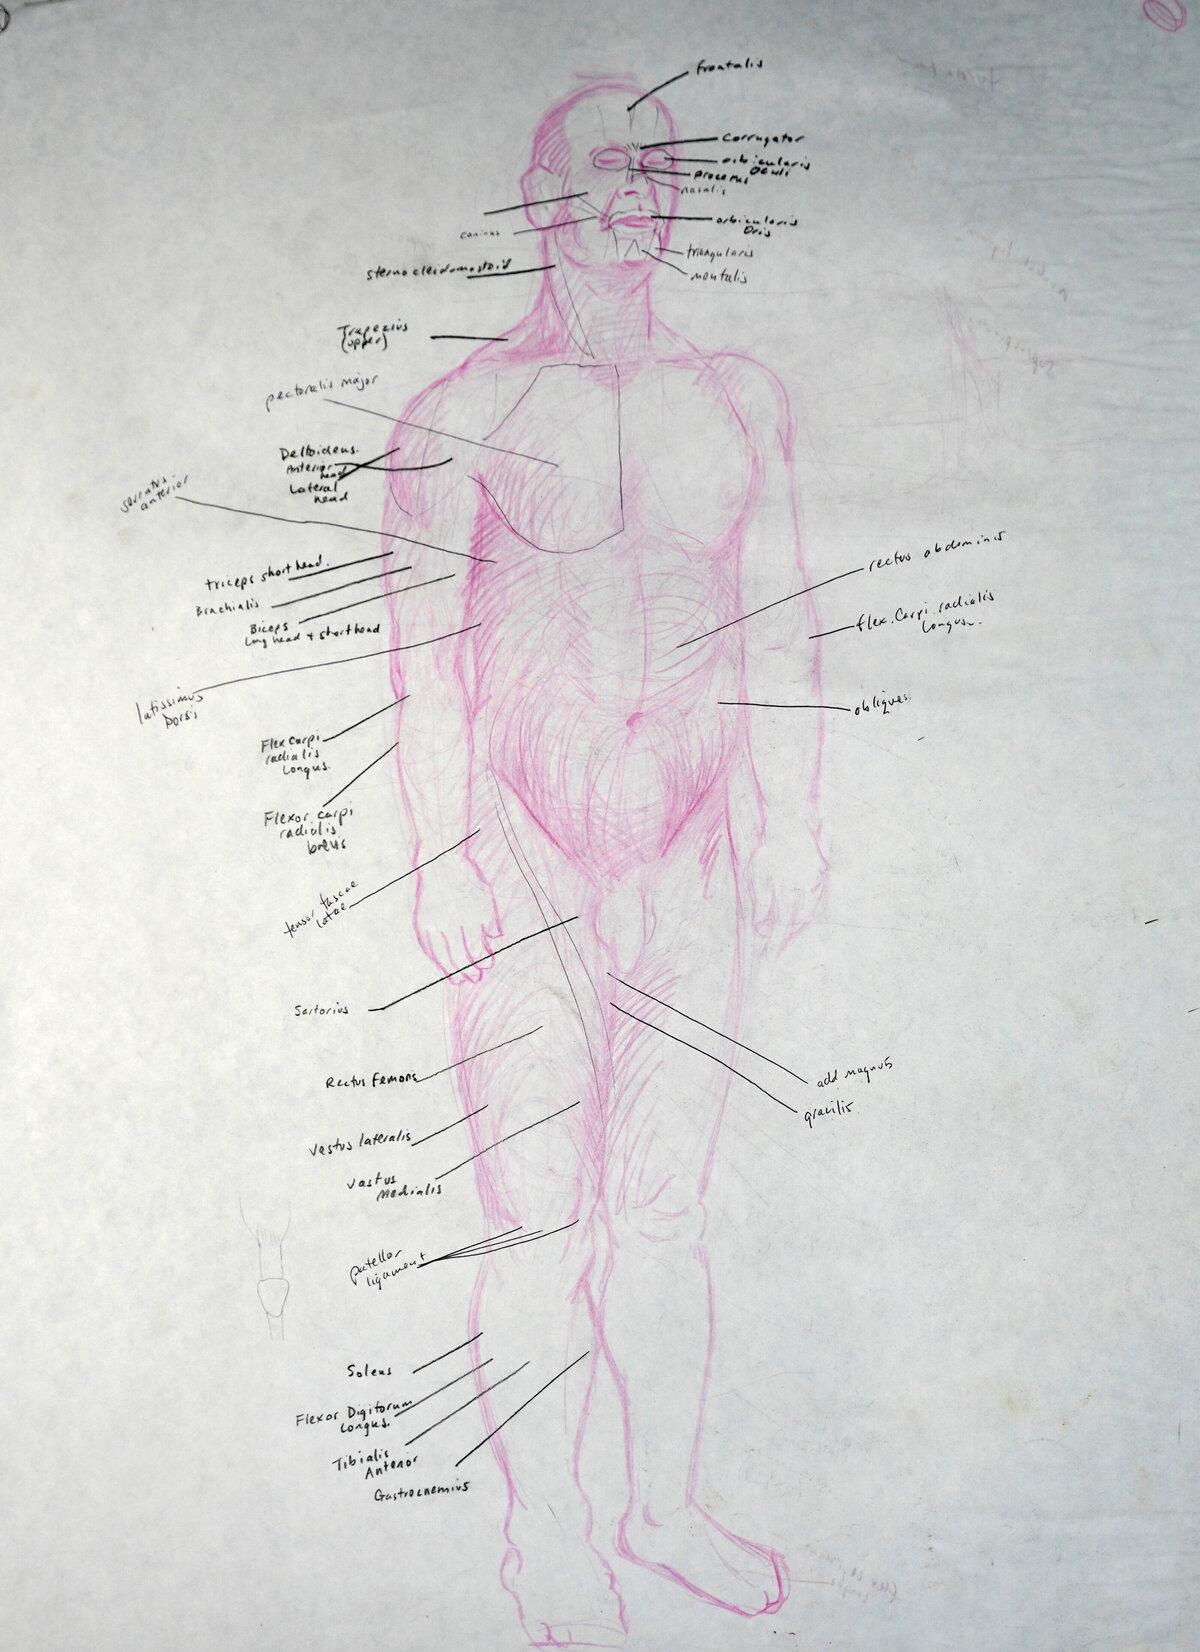 frontalis
corrugator
orbicularis
oculi
procerus
nasalis
caninus
orbicularis
oris
triangularis
mentalis
sternocleidomastoid
Trapezius
(upper)
pectoralis major
Deltoideus.
Anterior
head
Lateral
head
serratus
anterior
triceps short head.
Brachialis
Biceps
long head + shorthead
latissimus
Dorsi
rectus abdominis
flex. Carpi. radialis
longus.
obliques
Flex carpi
radialis
Longus.
Flexor carpi
radialis
brevis
tensor fascae
latae
Sartorius
Rectus Femoris
Vastus lateralis
Vastus
Medialis
add magnus
gracilis
patellar
ligament
Soleus
Flexor Digitorum
Longus.
Tibialis
Anterior
Gastrocnemius